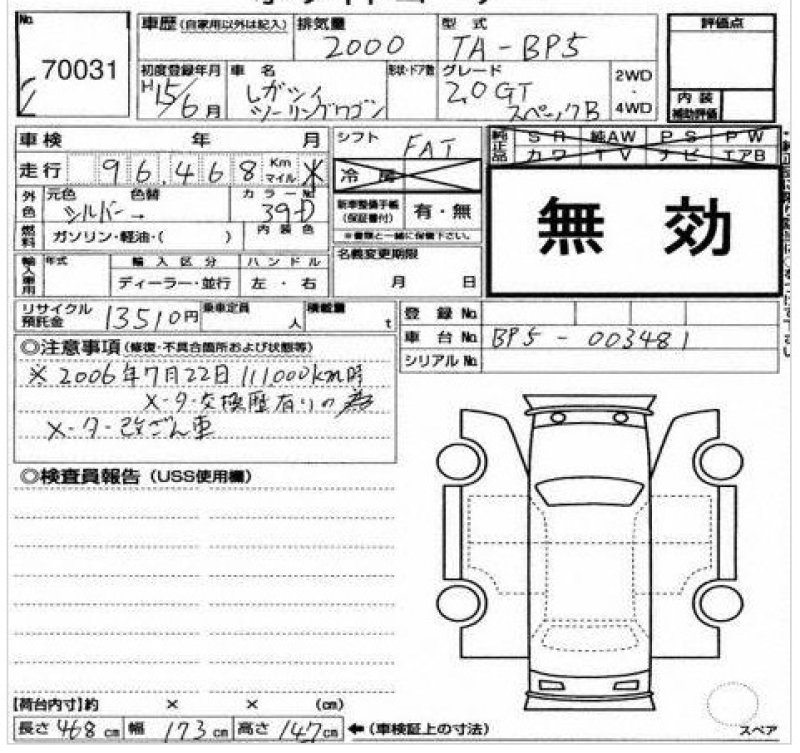 No. 70031
車歴(自家用以外は記入) 排気量 2000 型式 TA-BP5 評価点
初度登録年月 H15/6月 車名 レガシィツーリングワゴン 形状・ドア数 グレード 2.0GTスペックB 2WD・4WD 内装補助評価
車検 年 月 シフト FAT 純正品 SR 純AW PS PW
走行 96,468 Km マイル ※ 冷房 カワ TV ナビ エアB
外色 元色 シルバー 色替 → カラーNo. 39-D 新車整備手帳(保証書付) 有・無 無効
※書類と一緒に保管下さい。
燃料 ガソリン・軽油・( ) 内装色 名義変更期限 月 日
輸入車用 年式 輸入区分 ハンドル
ディーラー・並行 左・右
リサイクル預託金 13510円 乗車定員 人 積載量 t 登録No.
車台No. BP5-003481
シリアルNo.
◎注意事項(修復・不具合箇所および状態等)
※2006年7月22日 111,000km時
メーター交換歴有りの為
メーター改ざん車
◎検査員報告(USS使用欄)
【荷台内寸】約 × × (cm)
長さ468cm 幅173cm 高さ147cm ←(車検証上の寸法) スペア